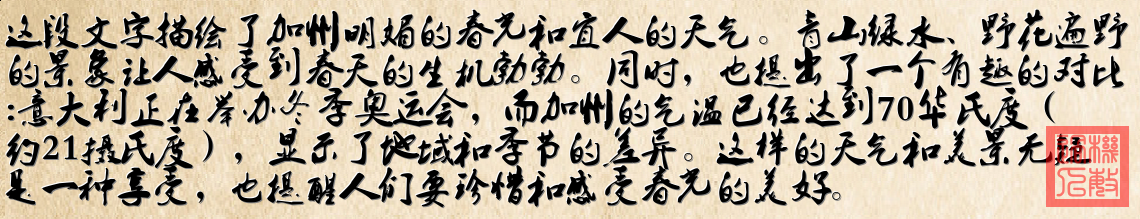 这段文字描绘了加州明媚的春光和宜人的天气。青山绿水、野花遍野
的景象让人感受到春天的生机勃勃。同时，也提出了一个有趣的对比
:意大利正在举办冬季奥运会，而加州的气温已经达到70华氏度（
约21摄氏度），显示了地域和季节的差异。这样的天气和美景无疑
是一种享受，也提醒人们要珍惜和感受春光的美好。